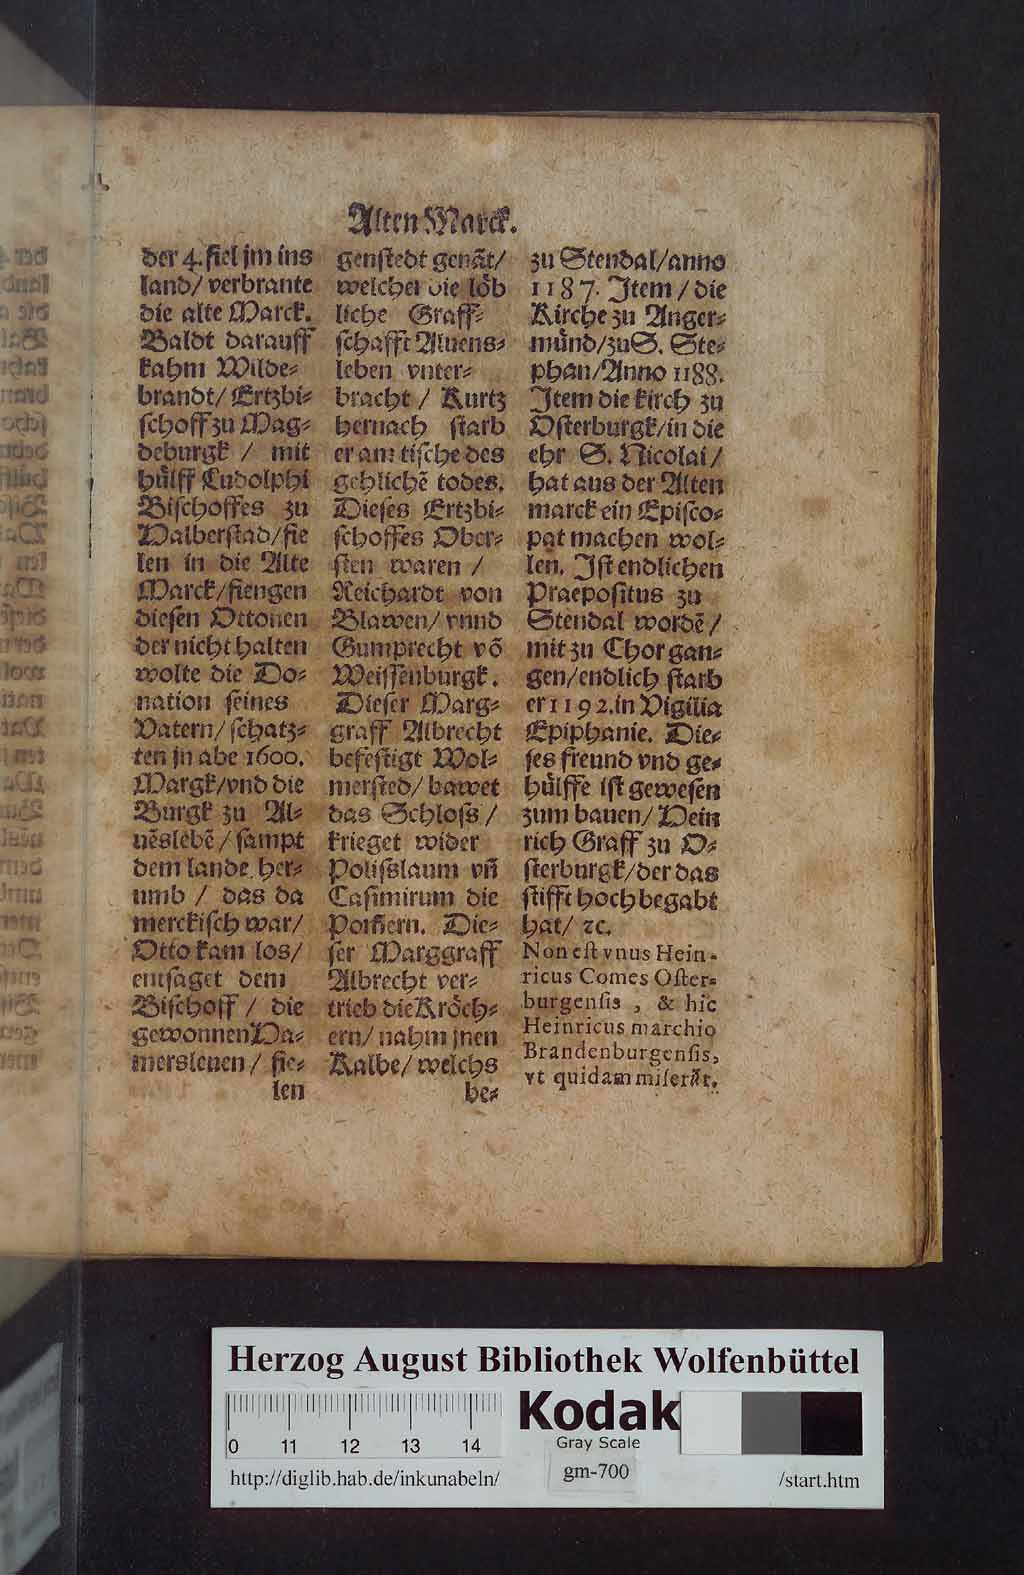 Alten Marck.
der 4. fiel jm ins
land/ verbrante
die alte Marck.
Baldt darauff
kahm Wilde⸗
brandt/ Ertzbi⸗
schoff zu Mag⸗
deburgk / mit
huͤlff Ludolphi
Bischoffes zu
Halberstad/fie
len in die Alte
Marck/fiengen
diesen Ottonen
der nicht halten
wolte die Do⸗
nation seines
Vatern/schatz⸗
ten jn abe 1600.
Margk/vnd die
Burgk zu Al⸗
uẽslebẽ / sampt
dem lande her⸗
umb / das da
merckisch war/
Otto kam los/
entsaget dem
Bischoff / die
gewonnen Ha⸗
mersleuen / fie⸗
len
genstedt genãt/
welcher die loͤb
liche Graff⸗
schafft Aluens⸗
leben vnter⸗
bracht / Kurtz
hernach starb
er am tische des
gehlichẽ todes.
Dieses Ertzbi⸗
schoffes Ober⸗
sten waren /
Reichardt von
Blawen/ vnnd
Gumprecht võ
Weissenburgk.
Dieser Marg⸗
graff Albrecht
befestigt Wol⸗
mersted/ bawet
das Schloss /
krieget wider
Polisslaum vñ
Casimirum die
Pomern. Die⸗
ser Marggraff
Albrecht ver⸗
trieb die Kroͤch⸗
ern/ nahm jnen
Kalbe/ welchs
be⸗
zu Stendal/anno
1187. Item / die
Kirche zu Anger⸗
muͤnd/zu S. Ste⸗
phan/Anno 1188.
Item die kirch zu
Osterburgk/in die
ehr S. Nicolai/
hat aus der Alten
marck ein Episco⸗
pat machen wol⸗
len. Ist endlichen
Praepositus zu
Stendal wordẽ/
mit zu Chor gan⸗
gen/endlich starb
er 1192. in Vigilia
Epiphanie. Die⸗
ses freund vnd ge⸗
huͤlffe ist gewesen
zum bauen/ Hein
rich Graff zu O⸗
sterburgk/der das
stifft hoch begabt
hat/ ⁊c.
Non est vnus Hein-
ricus Comes Oster-
burgensis , & hic
Heinricus marchio
Brandenburgensis,
vt quidam miserãt.
Herzog August Bibliothek Wolfenbüttel
0 11 12 13 14
Kodak
Gray Scale
gm-700
http://diglib.hab.de/inkunabeln/
/start.htm